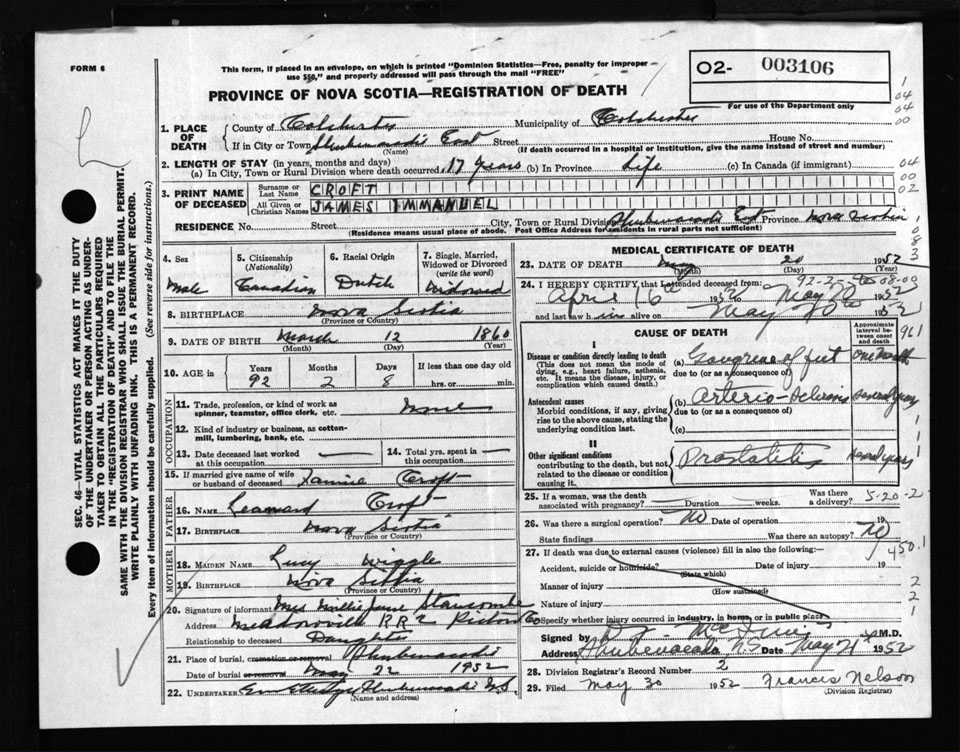 FORM 6
This form, if placed in an envelope, on which is printed "Dominion Statistics—Free, penalty for improper
use $50," and properly addressed will pass through the mail "FREE"
PROVINCE OF NOVA SCOTIA—REGISTRATION OF DEATH
02- 003106
For use of the Department only
1. PLACE OF DEATH { County of Colchester Municipality of Colchester
If in City or Town Shubenacadie East Street House No.
(Name) (If death occurred in a hospital or institution, give the name instead of street and number)
2. LENGTH OF STAY (in years, months and days)
(a) In City, Town or Rural Division where death occurred 17 years (b) In Province Life (c) In Canada (if immigrant)
3. PRINT NAME OF DECEASED { Surname or Last Name CROFT
All Given or Christian Names JAMES IMMANUEL
RESIDENCE No. Street City, Town or Rural Division Shubenacadie East Province Nova Scotia
(Residence means usual place of abode. Post Office Address for residents in rural parts not sufficient)
4. Sex Male
5. Citizenship (Nationality) Canadian
6. Racial Origin Dutch
7. Single, Married, Widowed or Divorced (write the word) Widowed
8. BIRTHPLACE Nova Scotia
(Province or Country)
9. DATE OF BIRTH March 12 1860
(Month) (Day) (Year)
10. AGE in { Years 92 Months 2 Days 8 If less than one day old hrs. or min.
OCCUPATION
11. Trade, profession, or kind of work as spinner, teamster, office clerk, etc. None
12. Kind of industry or business, as cotton-mill, lumbering, bank, etc.
13. Date deceased last worked at this occupation
14. Total yrs. spent in this occupation
15. If married give name of wife or husband of deceased Croft
FATHER
16. NAME Croft
17. BIRTHPLACE Nova Scotia
(Province or Country)
MOTHER
18. MAIDEN NAME Lucy
19. BIRTHPLACE Nova Scotia
(Province or Country)
20. Signature of informant Mrs
Address RR 2 Pictou Co
Relationship to deceased Daughter
21. Place of burial cremation or removal Shubenacadie
Date of burial or removal May 22 1952
22. UNDERTAKER Shubenacadie N.S.
(Name and address)
MEDICAL CERTIFICATE OF DEATH
23. DATE OF DEATH May 20 1952
(Month) (Day) (Year)
24. I HEREBY CERTIFY that I attended deceased from:
April 16 1952 to May 20 1952
and last saw him alive on May 20 1952
CAUSE OF DEATH
Approximate interval between onset and death
I
Disease or condition directly leading to death
(This does not mean the mode of dying, e.g., heart failure, asthenia, etc. It means the disease, injury, or complication which caused death.)
(a) Gangrene of feet one month
due to (or as a consequence of)
Antecedent causes
Morbid conditions, if any, giving rise to the above cause, stating the underlying condition last.
(b) Arterio-Sclerosis Several years
due to (or as a consequence of)
(c)
II
Other significant conditions
contributing to the death, but not related to the disease or condition causing it.
Prostatitis years
25. If a woman, was the death associated with pregnancy? Duration weeks. Was there a delivery?
5-20-2
26. Was there a surgical operation? No Date of operation 19
State findings Was there an autopsy? No
450.1
27. If death was due to external causes (violence) fill in also the following:—
Accident, suicide or homicide? Date of injury 19
(State which)
Manner of injury
(How sustained)
Nature of injury
Specify whether injury occurred in industry, in home, or in public place
Signed by M.D.
Address Shubenacadie N.S. Date May 21 1952
28. Division Registrar's Record Number 2
29. Filed May 30 1952 Francis Nelson
(Division Registrar)
SEC. 46—VITAL STATISTICS ACT MAKES IT THE DUTY
OF THE UNDERTAKER OR PERSON ACTING AS UNDER-
TAKER TO OBTAIN ALL THE PARTICULARS REQUIRED
IN THE "REGISTRATION OF DEATH" AND TO FILE THE
SAME WITH THE DIVISION REGISTRAR WHO SHALL ISSUE THE BURIAL PERMIT.
WRITE PLAINLY WITH UNFADING INK. THIS IS A PERMANENT RECORD.
Every item of information should be carefully supplied. (See reverse side for instructions.)